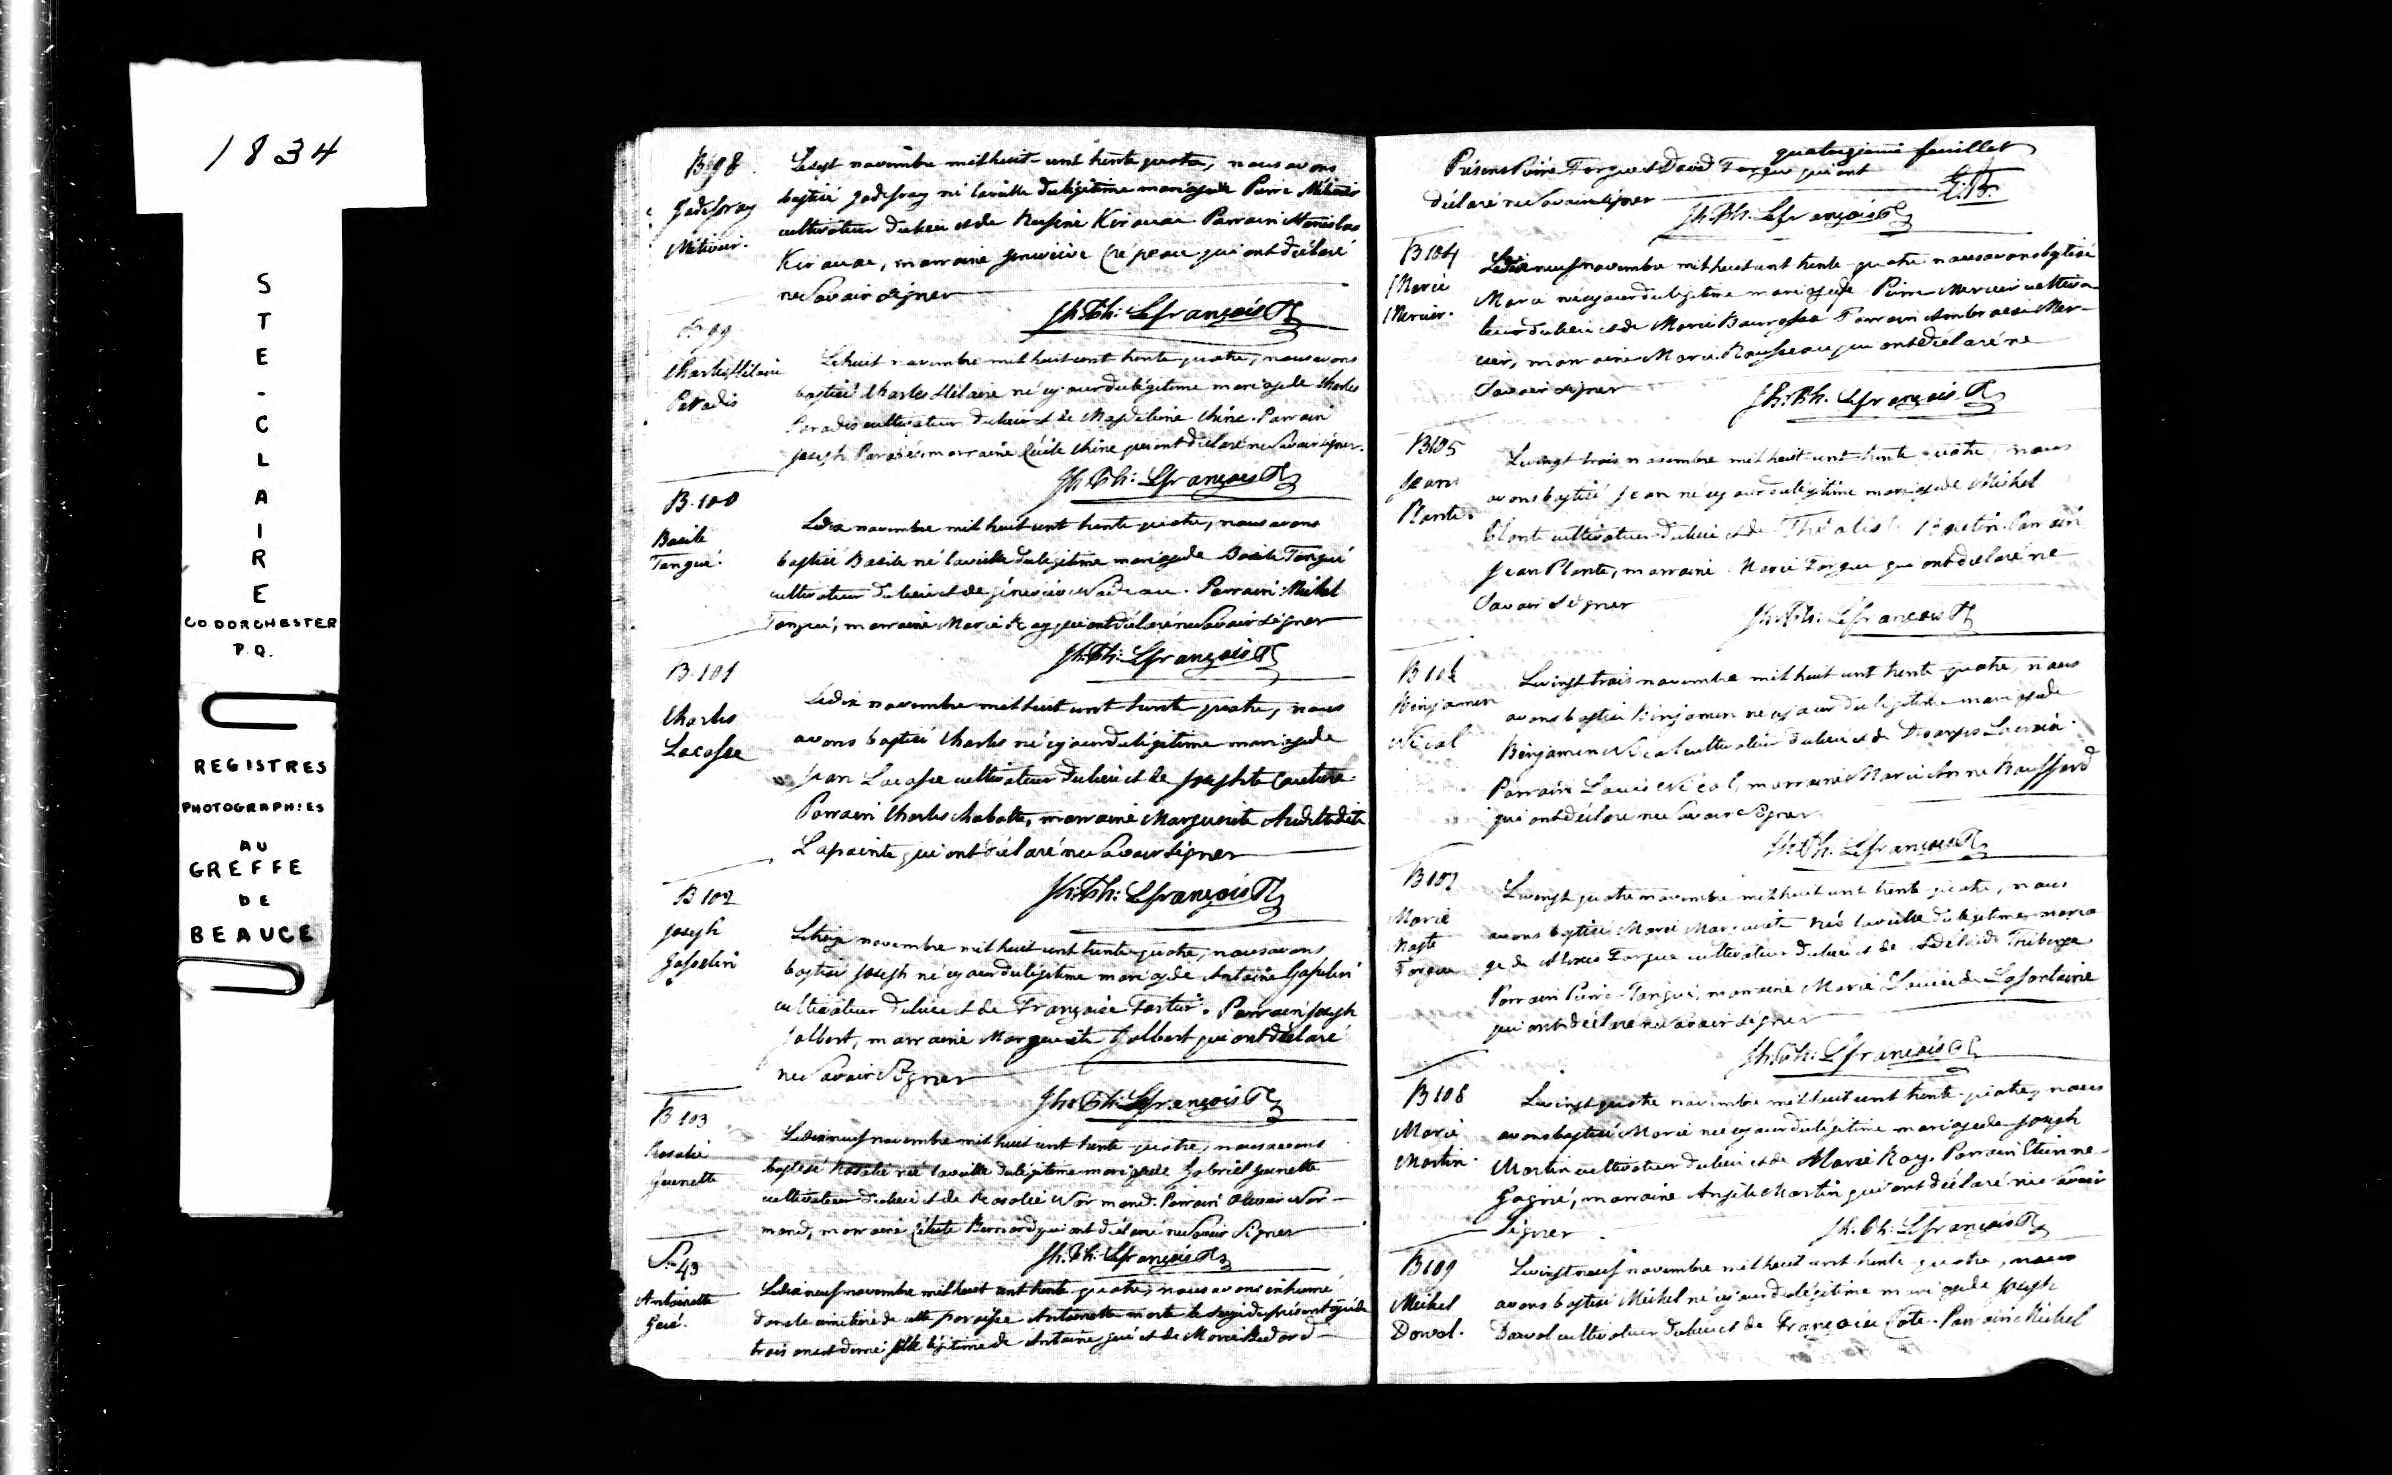 1834
STE-CLAIRE
CO DORCHESTER
P.Q.
REGISTRES
PHOTOGRAPHIES
AU
GREFFE
DE
BEAUCE
B 98
Godefroy
Métivier.
Le sept novembre mil huit-cent trente quatre, nous avons
baptisé Godefroy né la veille du légitime mariage de Pierre Métivier
cultivateur du lieu et de Kirouac Parrain Stanislas
Kirouac, marraine Genevieve Crépeau qui ont déclaré
ne savoir signer
Jh. Ph: Lefrançois Ptre
B 99
Charles Hilaire
Paradis
Le huit novembre mil huit cent trente quatre, nous avons
baptisé Charles Hilaire né ce jour du légitime mariage de Charles
Paradis cultivateur du lieu et de Magdeleine Chine. Parrain
Joseph Paradis, marraine Cécile Chine qui ont déclaré ne savoir signer.
Jh. Ph: Lefrançois Ptre
B. 100
Basile
Tangué.
Le dix novembre mil huit cent trente quatre, nous avons
baptisé Basile né la veille du légitime mariage de Basile Tangué
cultivateur du lieu et de Géneviève Nadeau. Parrain Michel
Tangué, marraine Marie Roy qui ont déclaré ne savoir signer
Jh. Ph: Lefrançois Ptre
B. 101
Charles
Lacasse
Le dix novembre mil huit cent trente quatre, nous
avons baptisé Charles né ce jour du légitime mariage de
Jean Lacasse cultivateur du lieu et de Josephte Couture
Parrain Charles Chabotte, marraine Marguerite Audet dite
Lapointe qui ont déclaré ne savoir signer
Jh. Ph: Lefrançois Ptre
B 102
Joseph
Gosselin
Le novembre mil huit cent trente quatre, nous avons
baptisé Joseph né ce jour du légitime mariage de Antoine Gosselin
cultivateur du lieu et de Françoise Fortier. Parrain Joseph
Jalbert, marraine Marguerite Jalbert qui ont déclaré
ne savoir signer
Jh. Ph: Lefrançois Ptre
B 103
Rosalie
Gounette
Le dix neuf novembre mil huit cent trente quatre, nous avons
baptisé Rosalie née la veille du légitime mariage de Gabriel Gounette
cultivateur du lieu et de Rosalie Normand. Parrain Olivier Nor-
mand, marraine Céleste Bernard qui ont déclaré ne savoir signer
Jh. Ph: Lefrançois Ptre
S. 43
Antoinette
Le dix neuf novembre mil huit cent trente quatre, nous avons inhumé
dans le cimetière de cette paroisse Antoinette morte le du présent agée de
trois ans et demi fille légitime de Antoine et de Marie Bedard
quatorzième feuillet
Présens Pierre Forgue et David Forgue qui ont
déclaré ne savoir signer
Jh. Ph. Lefrançois Ptre
B 104
Marie
Mercier.
Le dix neuf novembre mil huit cent trente quatre nous avons baptisé
Marie née ce jour du légitime mariage de Pierre Mercier cultiva-
teur du lieu et de Marie Parrain Ambroise Mer-
cier, marraine Marie Rousseau qui ont déclaré ne
savoir signer
Jh. Ph. Lefrançois Ptre
B 105
Jean
Plante.
Le vingt trois novembre mil huit cent trente quatre, nous
avons baptisé Jean né ce jour du légitime mariage de Michel
Plante cultivateur du lieu et de Boutin. Parrain
Jean Plante, marraine Marie Forgue qui ont déclaré ne
savoir signer
Jh. Ph: Lefrançois Ptre
B 106
Binjamen
Nécol
Le vingt trois novembre mil huit cent trente quatre, nous
avons baptisé Binjamen né ce jour du légitime mariage de
Binjamen Nécol cultivateur du lieu et de
Parrain Louis Nécol, marraine Marie Anne
qui ont déclaré ne savoir signer
Jh. Ph. Lefrançois Ptre
B 107
Marie
Forgue
Le vingt quatre novembre mil huit cent trente quatre, nous
avons baptisé Marie Marguerite née la veille du légitime maria-
ge de Forgue cultivateur du lieu et de
Parrain Pierre Tangué, marraine Marie Louise de Lafontaine
qui ont déclaré ne savoir signer
Jh. Ph: Lefrançois Ptre
B 108
Marie
Martin.
Le vingt quatre novembre mil huit cent trente quatre, nous
avons baptisé Marie née ce jour du légitime mariage de Joseph
Martin cultivateur du lieu et de Marie Roy. Parrain Etienne
Gagné, marraine Angèle Martin qui ont déclaré ne savoir
signer
Jh. Ph: Lefrançois Ptre
B 109
Michel
Dowal.
Le vingt neuf novembre mil huit cent trente quatre, nous
avons baptisé Michel né ce jour du légitime mariage de Joseph
Dowal cultivateur du lieu et de Françoise Cote. Parrain Michel